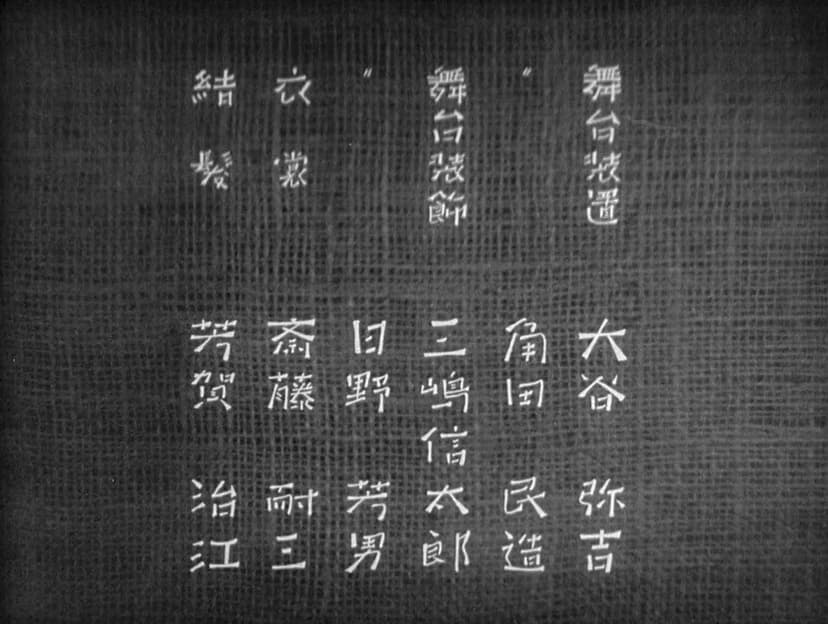 舞台装置 大谷弥吉
〃 角田民造
舞台装飾 三嶋信太郎
〃 日野芳男
衣裳 斎藤耐三
結髪 芳賀治江